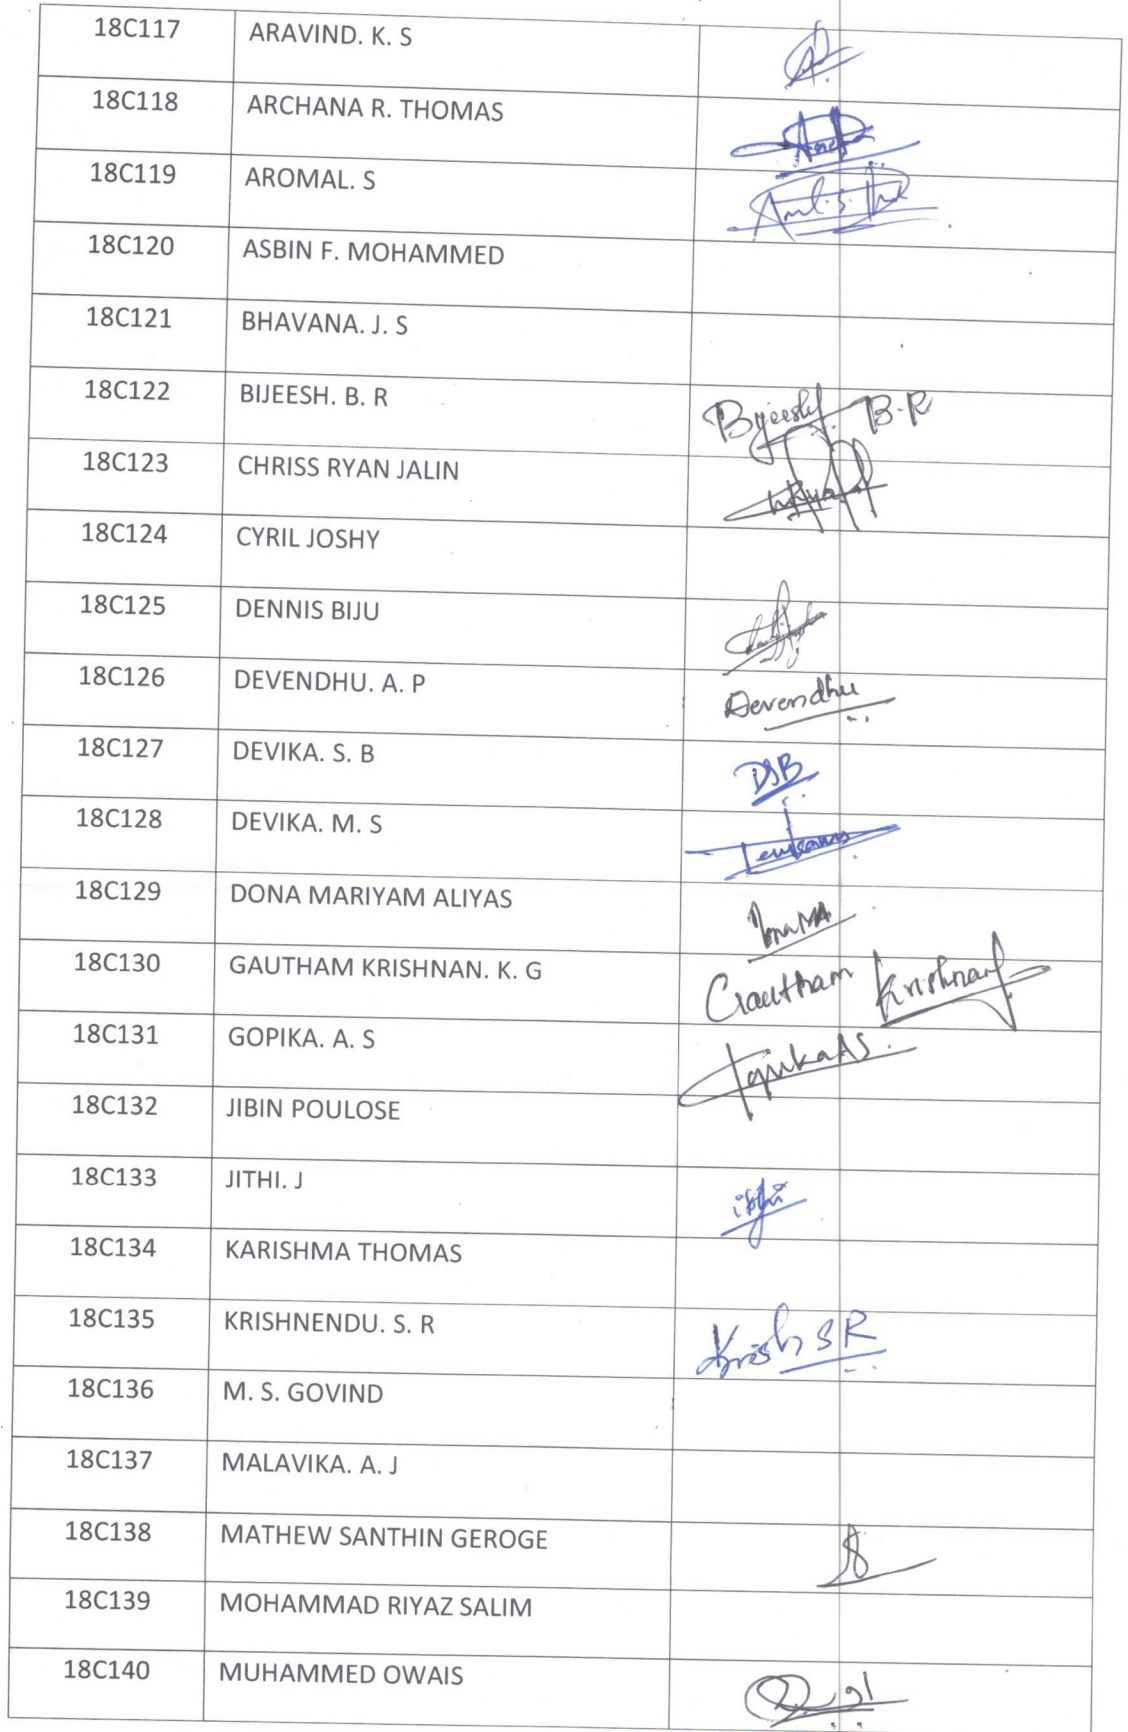 18C117 ARAVIND. K. S
18C118 ARCHANA R. THOMAS
18C119 AROMAL. S
18C120 ASBIN F. MOHAMMED
18C121 BHAVANA. J. S
18C122 BIJEESH. B. R Bijeesh B-R
18C123 CHRISS RYAN JALIN
18C124 CYRIL JOSHY
18C125 DENNIS BIJU
18C126 DEVENDHU. A. P Devendhu
18C127 DEVIKA. S. B DSB
18C128 DEVIKA. M. S
18C129 DONA MARIYAM ALIYAS
18C130 GAUTHAM KRISHNAN. K. G Gautham Krishnan
18C131 GOPIKA. A. S Gopika AS.
18C132 JIBIN POULOSE
18C133 JITHI. J
18C134 KARISHMA THOMAS
18C135 KRISHNENDU. S. R Krish SR
18C136 M. S. GOVIND
18C137 MALAVIKA. A. J
18C138 MATHEW SANTHIN GEROGE
18C139 MOHAMMAD RIYAZ SALIM
18C140 MUHAMMED OWAIS